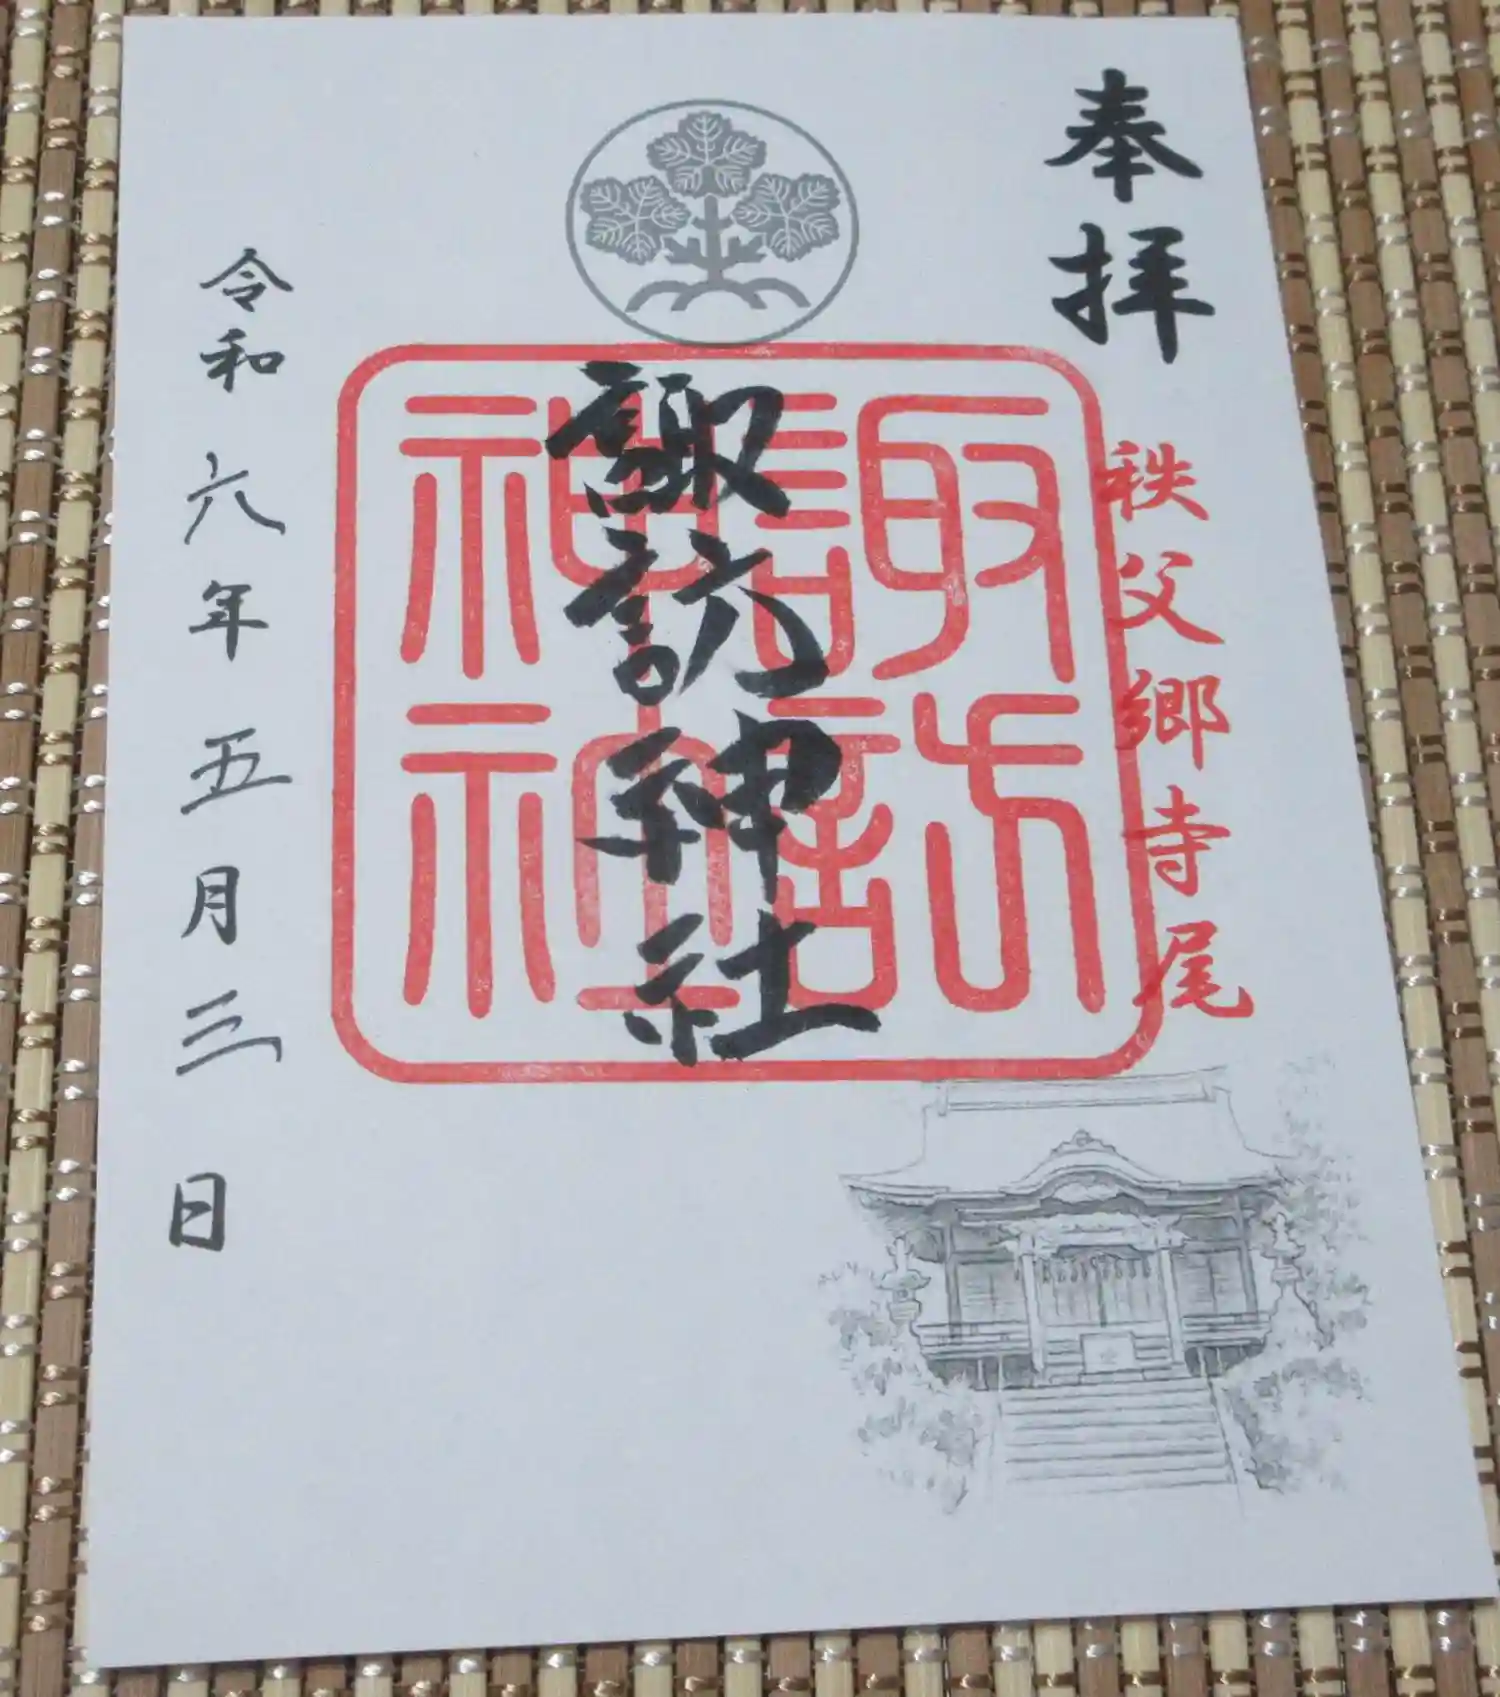 奉拝
秩父郷寺尾
諏訪神社
諏訪神社
令和六年五月三日